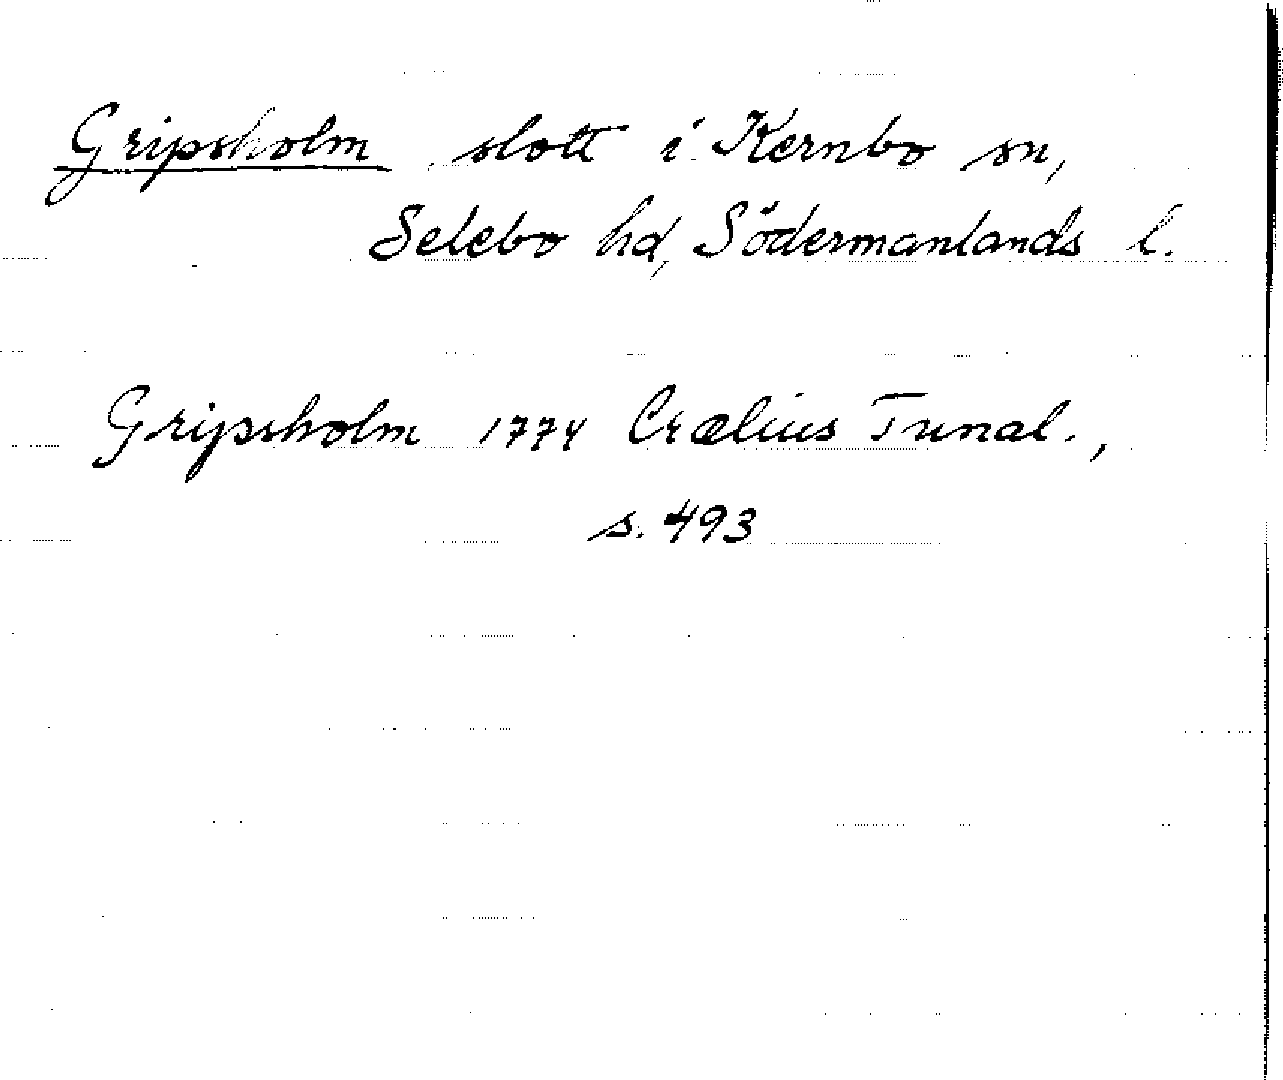 Gripsholm, slott i Kernbo sn,
Selebo hd, Södermanlands l.
Gripsholm 1774 Crælius Tunal.,
s. 493